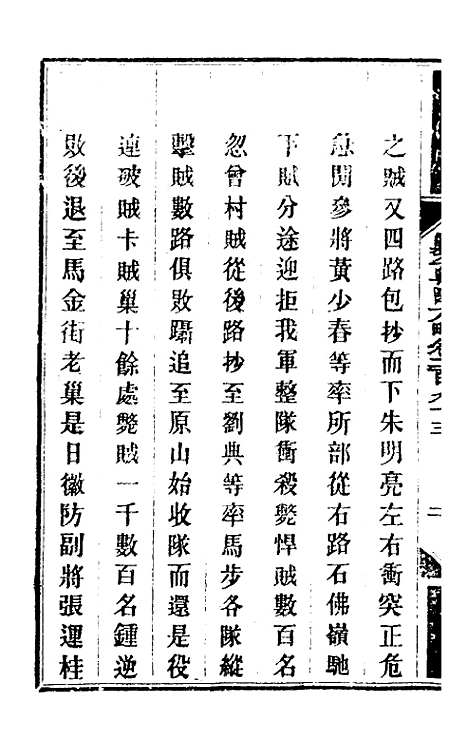 之賊又四路包抄而下朱明亮左右衝突正危
急聞參將黃少春等率所部從右路石佛嶺馳
下賊分途迎拒我軍整隊衝殺斃悍賊數百名
忽曾村賊從後路抄至劉典等率馬步各隊縱
擊賊數路俱敗躡追至原山始收隊而還是役
連破賊卡賊巢十餘處斃賊一千數百名鍾逆
敗後退至馬金街老巢是日徽防副將張運桂